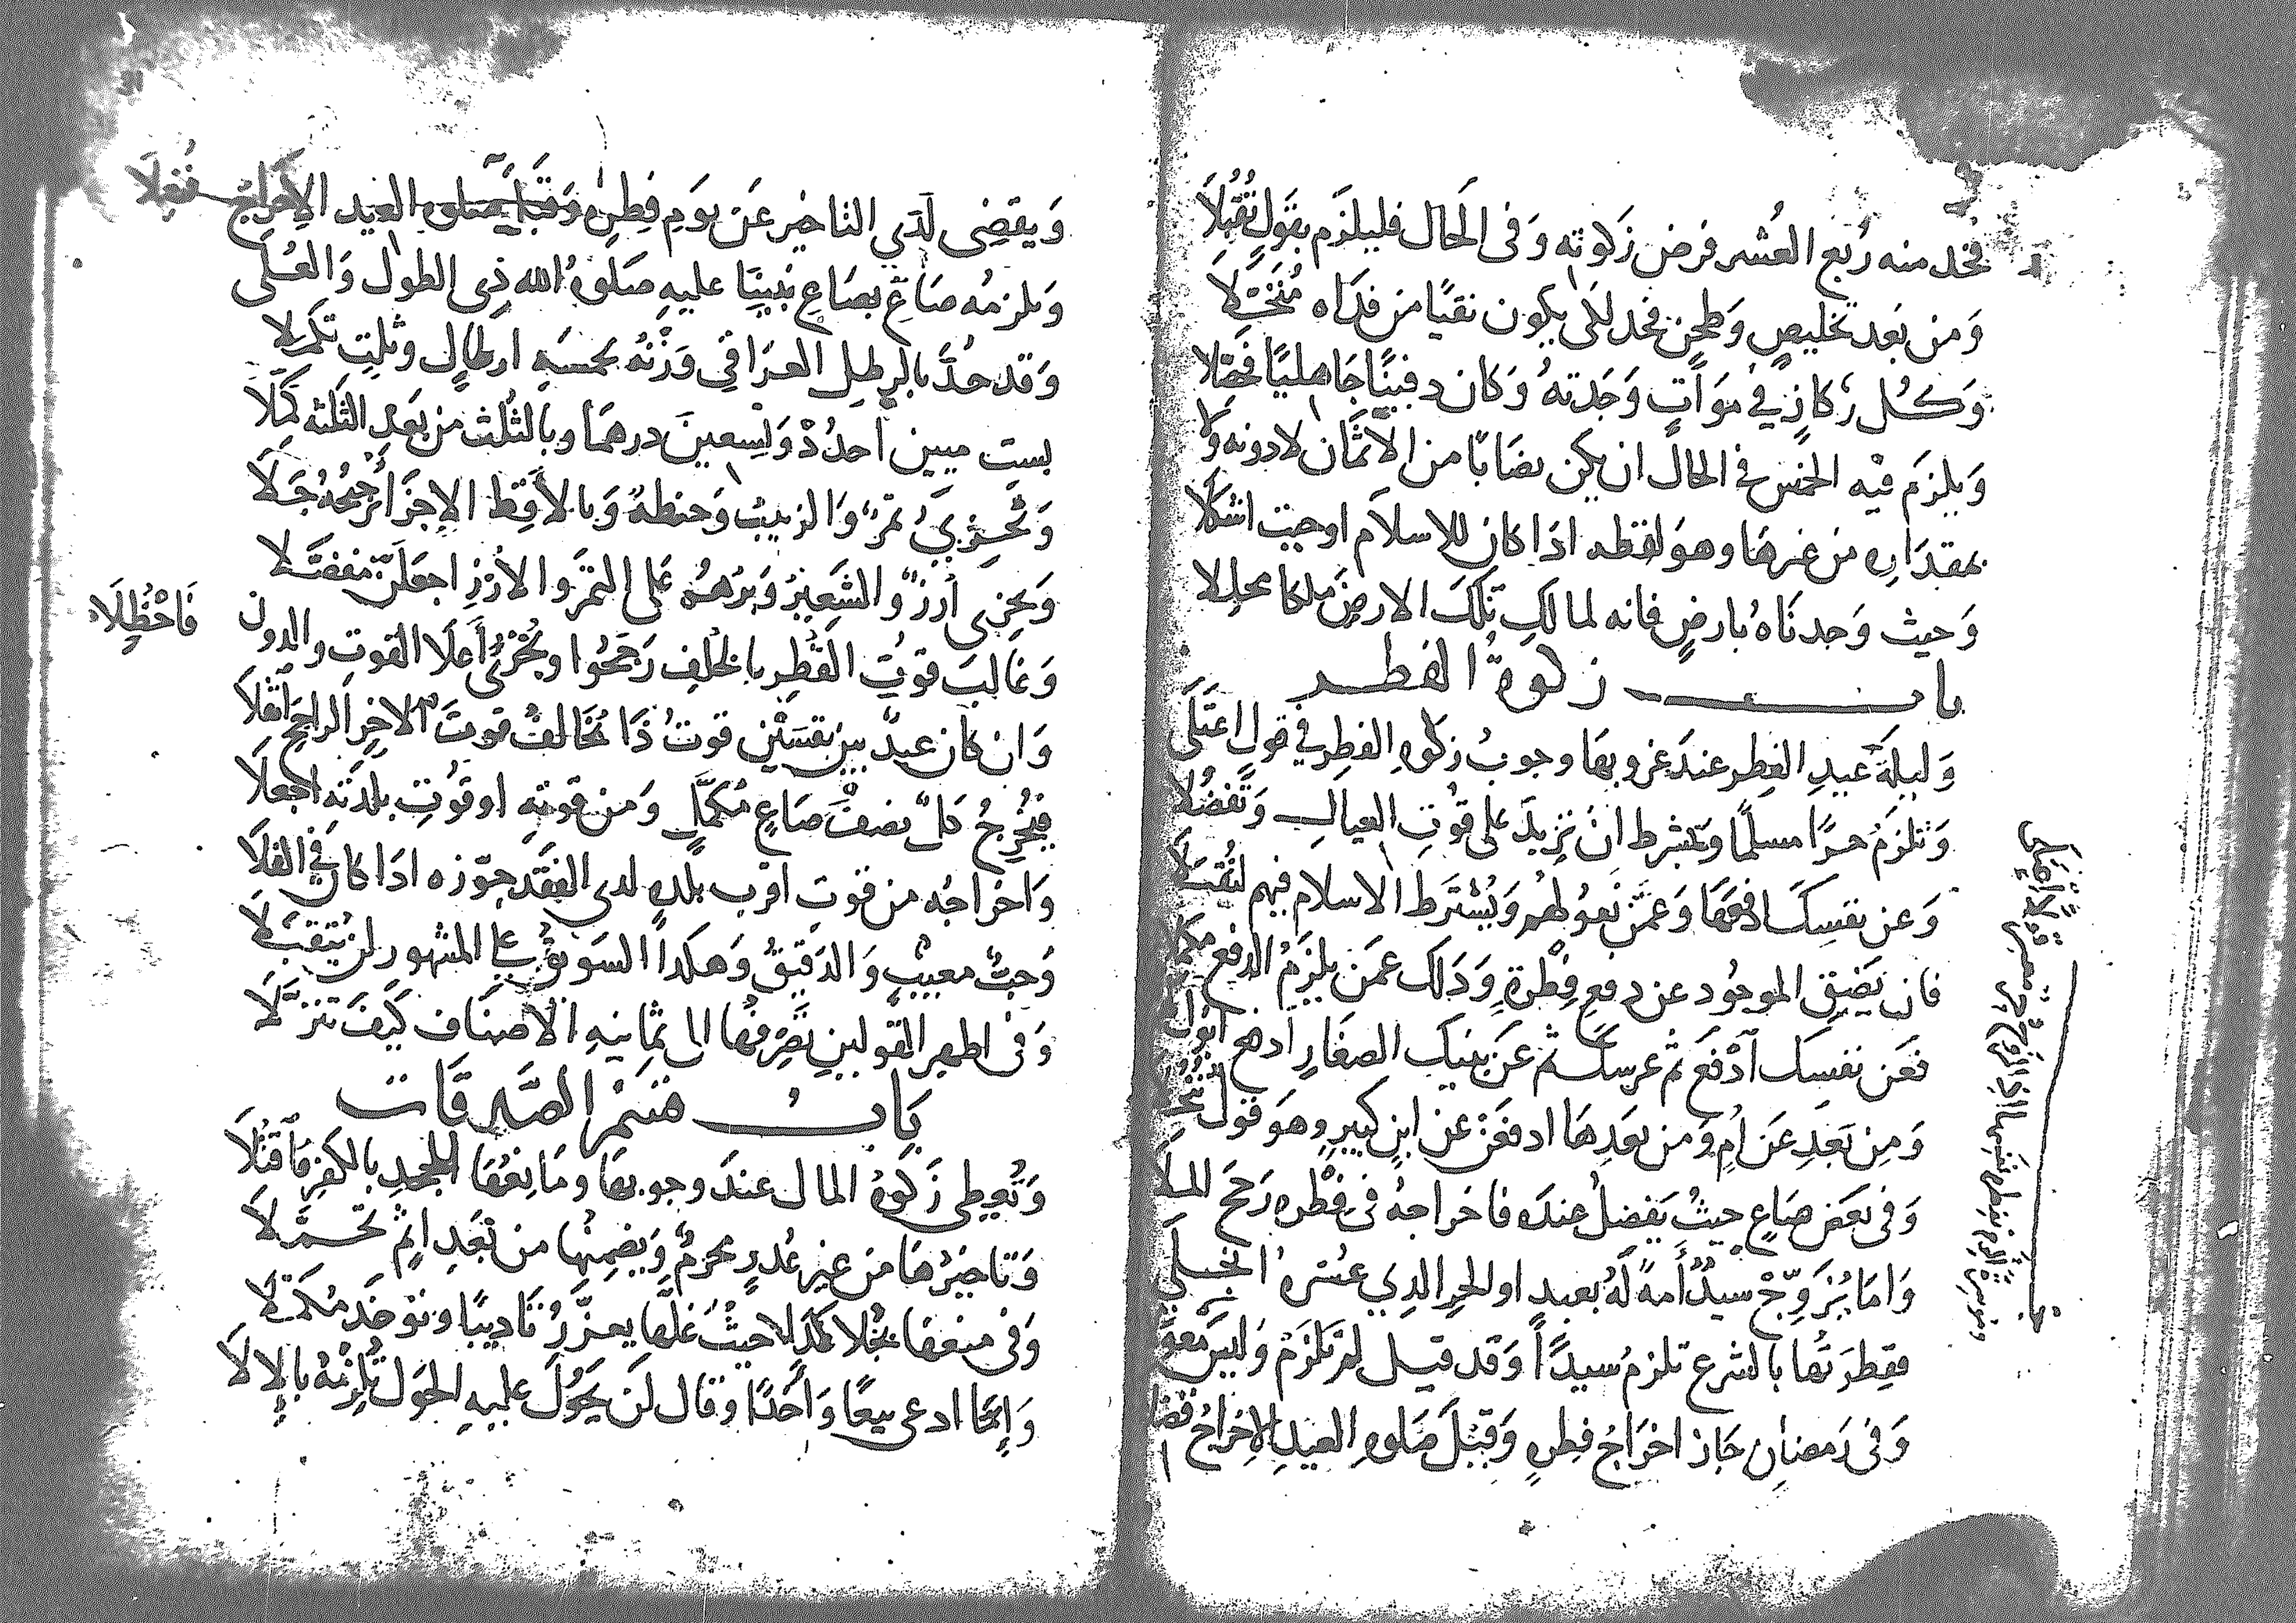 فخد منه رُبع العُشر فرض زكوته وَفى الحَال فليلزَم بقَولٍ تُقُبّلَا
وَمن بَعد تخليصٍ وَطحنٍ فخد للَى يكون نقيًا من فدَاه مُنَخّلا
وَكُل رِكَازٍ في مَوَاتٍ وَجَدتهُ وَكان دفينًا جَاهليًا فحَصّلا
وَيلزَم فيه الخمس فى الحال ان يكن نصَابًا من الاثمَان لا دونه وَلا
بمقدَاره من غيرهَا وهوَ لقطه اذَا كان للاسلام اوحيت اشكلا
وَحيث وَجدنَاهُ بارضٍ فانه لمالك تلكَ الارض ملكا محللا
باب زكوةُ الفطر
وَليلةَ عيدِ الفِطر عندَ غروبهَا وجوبُ زكوه الفطِر فى قولٍ اعتَلَى
وَتلزَمُ حرًا مسلمًا وَبشرط انْ تزيدَ على قوُتِ العيالِ وَتَفضُلا
وَعن نفسِكَ ادفعهَا وَعمّن تعُولهمُ وَيُشترَط الاسلام فيهم لتُقبَلا
فان يَضق الموجُود عن دفع فِطْرةٍ وَدَلك عمَن يلزَمُ الدفع مكملا
فعَن نفسِكَ اَدْفَع ثم عرسِك ثم عَن بنيك الصغَارِ
وَمِن بَعدِ عَن اُمٍ وَمن بعَدِهَا ادفعَن عن ابنٍ كبيرٍ وهوَ قول
وَفى بعَض صَاعٍ حيثُ يَفضلُ عندَه فاخراجهُ فى فِطْره رَجح الملا
وَامَا يُزَوِّجْ سَيّدٌ أَمةً لهُ بعبدٍ او الحر الدي عسْره
ففِطرَتُها بالشرع تلزمُ سيدًا وَقد قيل لمَ تلزَمْ وَليسَ
وَفى رَمضان جَازَ اخرَاجُ فطرهٍ وَقبْلَ صَلوهِ العيدِ الاخراجُ
وَيقضِى لَدَى التاخير عَن يَومِ فِطرٍ وَقبلَ صَلوه العيد الاِخراجُ فُعِلَا
وَيلزمُه صَاعٌ بصَاعِ نبيّنَا عليهِ صَلَوهُ الله ذِى الطول وَالعُلَى
وَقد حُدَّ بالرطل العرَاقي وَزْنُه بخمسَهِ ارطالٍ وثلثٍ تكمّلا
بستِ ميين احدُدْ وَتِسعينَ درهمًا وبالثُلث من بَعدِ الثلثه كمّلَا
وَيُجزِيُ تمرٌ وَالزبيبُ وَحنطهٌ وَبالاَقِطِ الاِجزَا تُرجِّحُهُ جَلَا
وَيجزِى ارزٌ وَالشعيرُ وَبُرهُم على التمَر وَالارُزِ اجعَلَنّ مفضَّلا
وَغالبَ قوتِ القُطِر بالخلف رَجّحُوا ويُجزئُ أَعلَا القوتِ والدون فَاحْظُلَاَ
وَان كان عبدٌ بين نفسَيْن قوتُ ذَا يُخَالفُ قوتَ الاخرِ الراجحَ اقبلَا
فيُخرِجُ كلٌ نصفَ صَاعٍ مُكمَّلٍ وَمن قوتهِ اوقوُتِ بلدتهِ اجعلَا
وَاخراجُه من قوت اقرب بلدهٍ لدى الفقد جوّزه اذَا كان فى الفلَا
وَحبٌ معيبٌ وَالدَقيقُ وَهكدا السَويقُ على المشهور لن يُتقَبّلَا
وَفى اظهر القولينِ تصَرِفُها الى ثمانيهِ الاصنَاف كيَفَ تنزلَا
بَابُ قسَمْ الصَّدقَات
وَتُعطِى زَكوهُ المال عندَ وجوبهَا ومَانِعُهَا للجحدِ بالكفر اقتُلَا
وَتاخيرُهَا من غير عُدرٍ محرمٌ وَيضمنُها من بَعَدِ اثمٍ تحمّلَا
وَفى منعهَا بخُلًا كذا حيثُ غلّها يعزَّرُ تاديبًا وَتوخَد مُكمَلا
وَاِمّا ادعى بيعًا وَاحدًا وَقال لَن يَحوُلَ عليهِ الحوَل تُلزِمهُ بالاِلَا